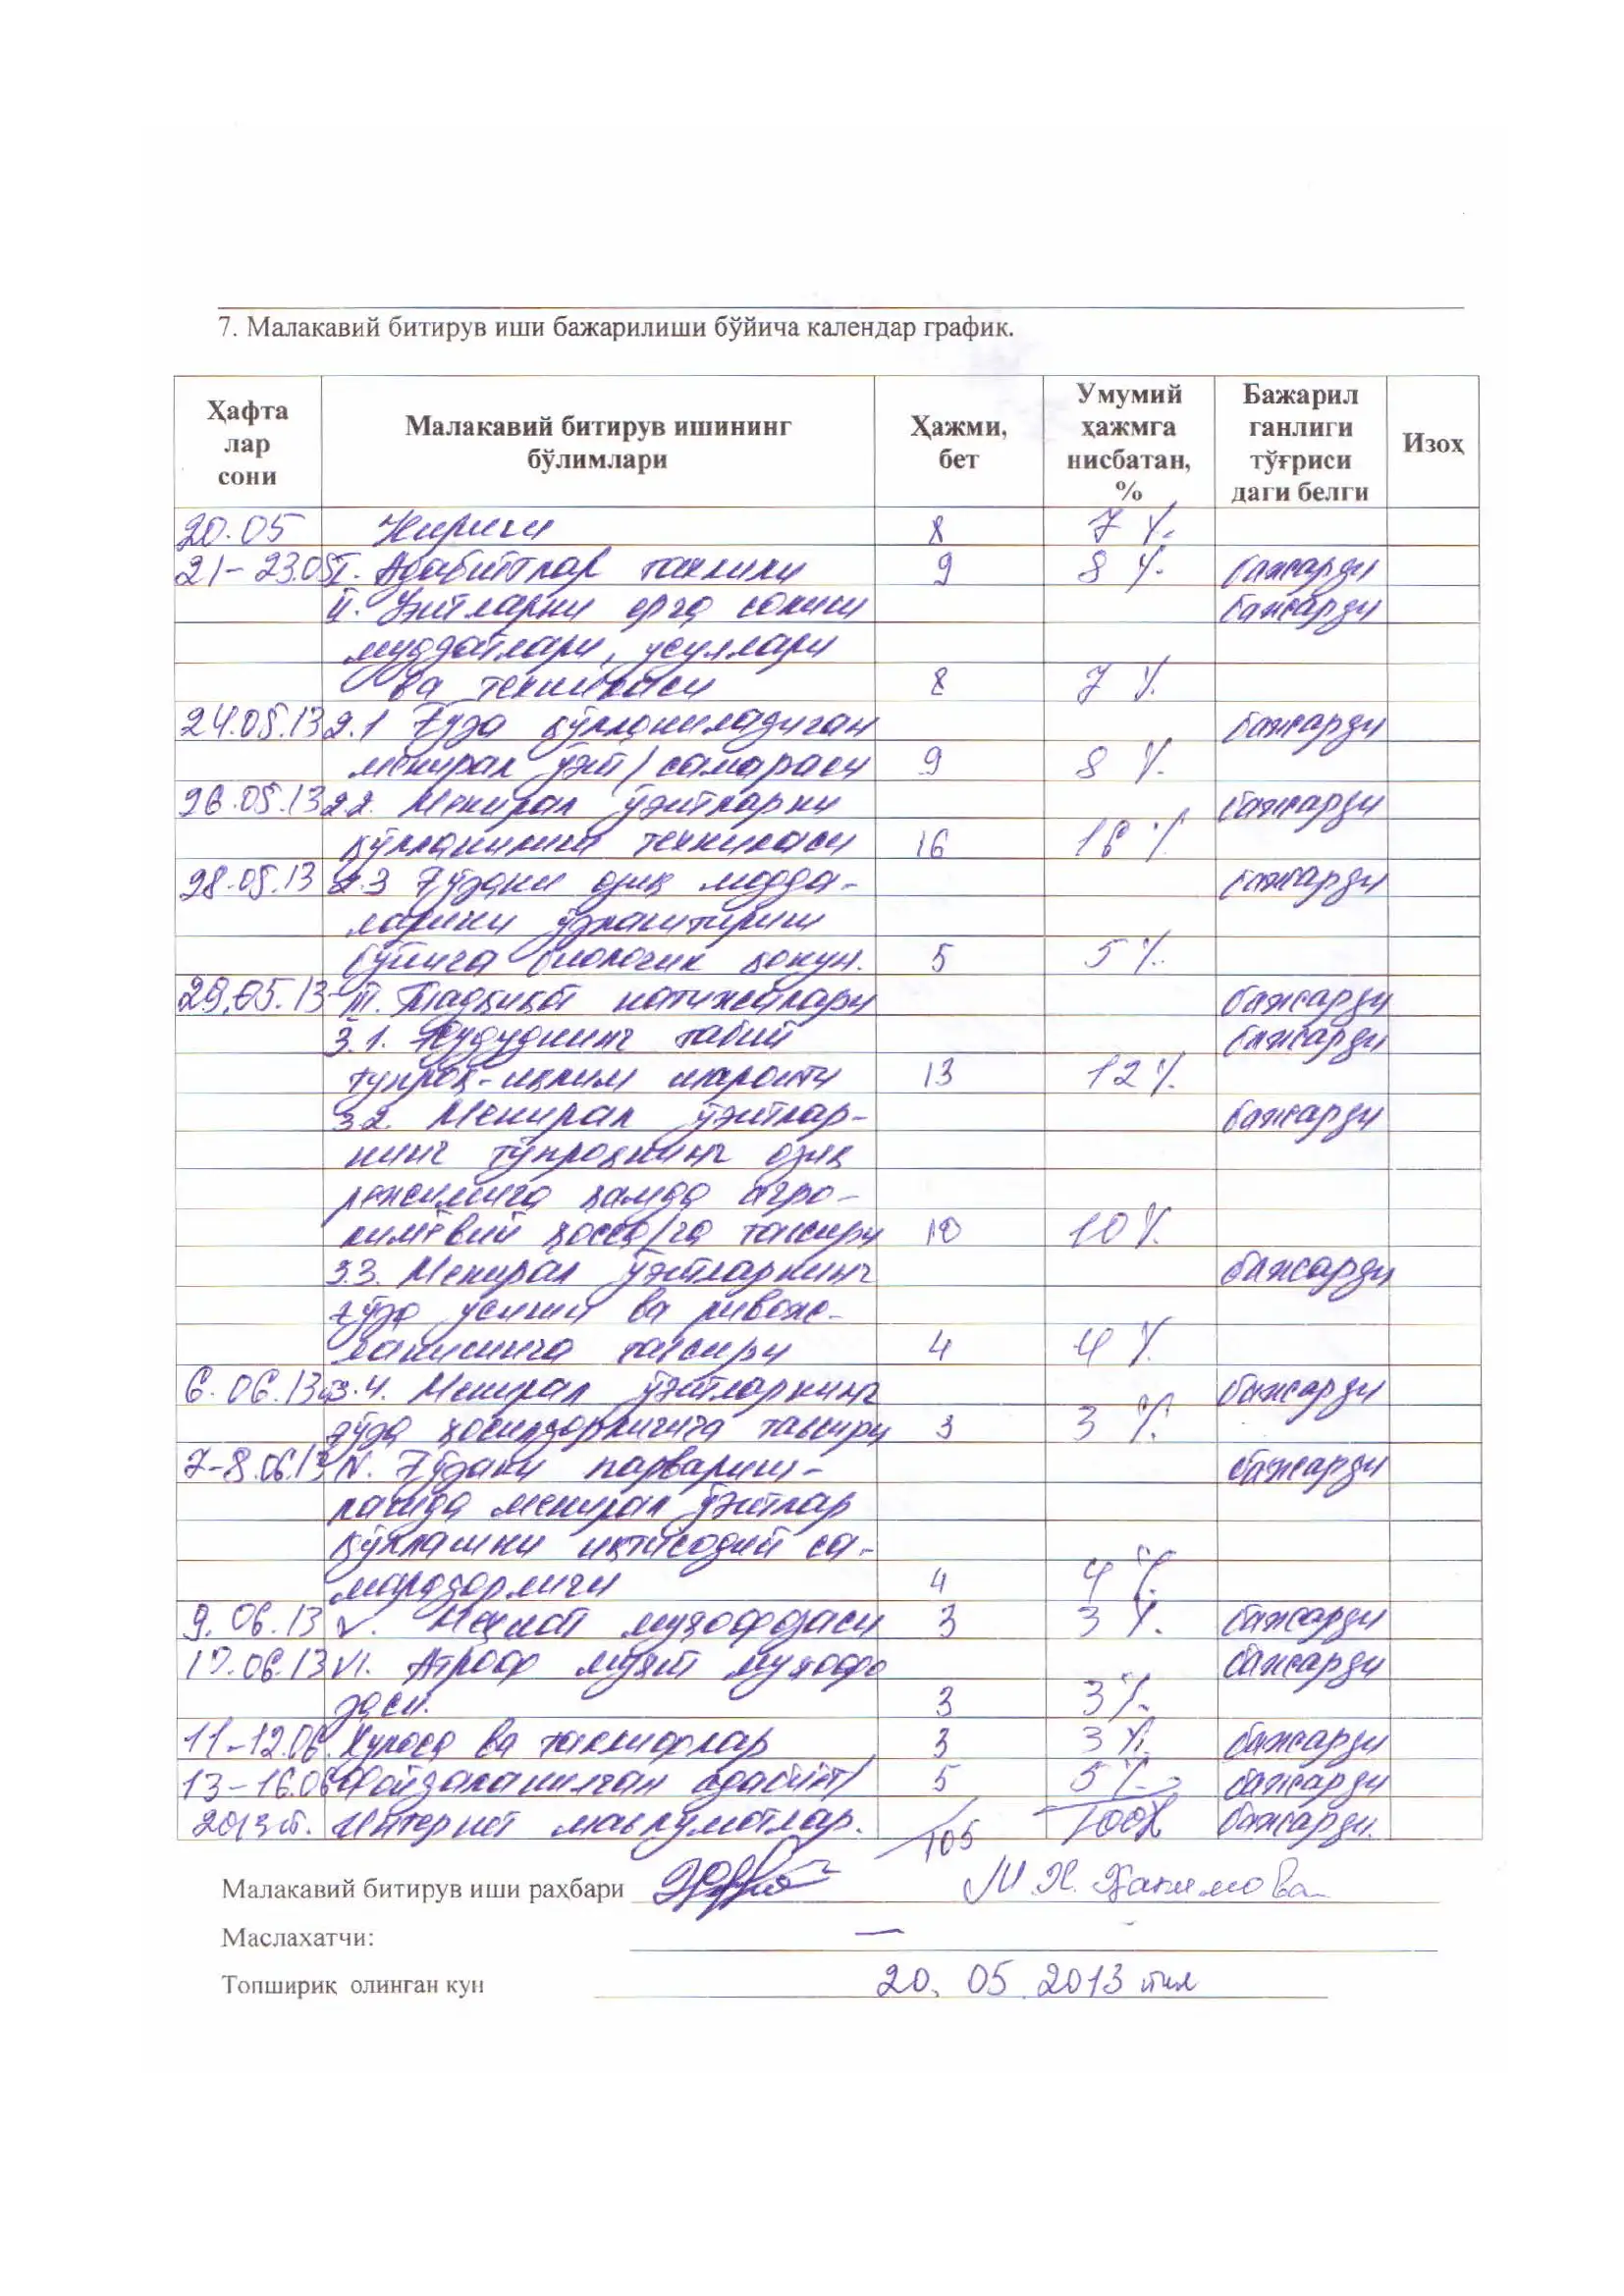 7. Малакавий битирув иши бажарилиши бўйича календар график.
Ҳафта лар сони | Малакавий битирув ишининг бўлимлари | Ҳажми, бет | Умумий ҳажмга нисбатан, % | Бажарил ганлиги тўғриси даги белги | Изоҳ
20.05 Кириш 8 7 %
21-23.05 I. Адабиётлар тахлили 9 8 % бажарди
II. Ўғитларни ерга солиш бажарди
муддатлари, усуллари
ва техникаси 8 7 %
24.05.13 2.1 Ғўза қўлланиладиган бажарди
минерал ўғит/ самараси 9 8 %
26.05.13 2.2. Минерал ўғитларни бажарди
қўлланилиш техникаси 16 16 %
28.05.13 2.3 Ғўзани озиқ модда- бажарди
ларини ўзлаштириш
бўйича биологик қонун. 5 5 %
29.05.13 III. Тадқиқот натижалари бажарди
3.1. Ҳудуднинг табий бажарди
тупроқ-иқлим шароити 13 12 %
3.2. Минерал ўғитлар- бажарди
нинг тупроқнинг озиқ
режимига ҳамда агро-
кимёвий хосса/га таъсири 10 10 %
3.3. Минерал ўғитларнинг бажарди
ғўза усиши ва ривож-
ланишига таъсири 4 4 %
6.06.13 3.4. Минерал ўғитларнинг бажарди
ғўза ҳосилдорлигига таъсири 3 3 %
7-8.06.13 IV. Ғўзани парвариш- бажарди
лашда минерал ўғитлар
қўллашни иқтисодий са-
марадорлиги 4 4 %
9.06.13 V. Меҳнат муҳофазаси 3 3 % бажарди
10.06.13 VI. Атроф муҳит муҳофа бажарди
заси. 3 3 %
11-12.06. Хулоса ва таклифлар 3 3 % бажарди
13-16.06 Фойдаланилган адабиёт/ 5 5 % бажарди
2013 й. Интернет маълумотлар. 105 100% бажарди.
Малакавий битирув иши раҳбари М.Х.
Маслахатчи: —
Топшириқ олинган кун 20.05.2013 йил